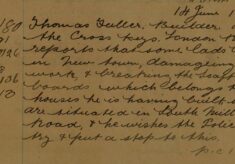 1st June 1
Thomas Fuller, Builder,
the Cross Keys, London R
reports that some lads
in New town, damaging
work, & breaking the scaff
boards which belongs t
houses he is having built
are situated in South Mill
Road, & he wishes the Police
try & put a stop to this.
P.C.